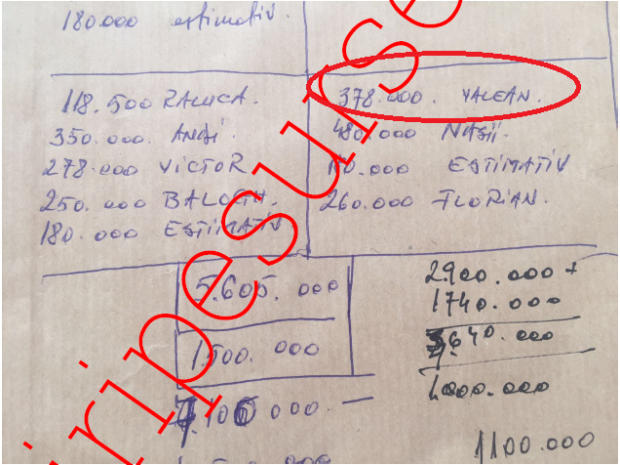 180.000 estimativ.
118.500 RALUCA.
350.000. Andi.
278.000 VICTOR.
250.000 BALOGH.
180.000 ESTIMATIV
378.000. VALEAN.
480.000 NAȘII.
ESTIMATIV
260.000 FLORIAN.
5.605.000
1.500.000
7.105 000.
2.900.000 +
1740.000
4640.000
1.000.000
1100.000